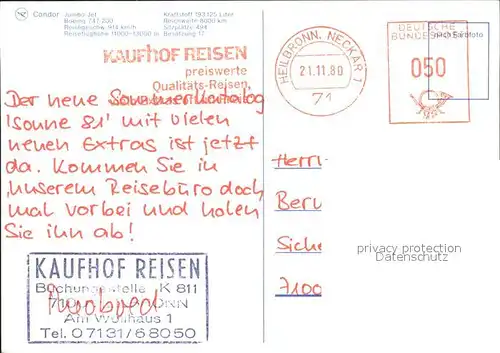 Condor Jumbo Jet
Boeing 747/230
Kraftstoff 193125 Liter
Reichweite 8000 km
Sitzplätze 494
Besatzung 17
KAUFHOF REISEN
preiswerte
Qualitäts-Reisen,
HEILBRONN, NECKAR 1
21.11.80
71
DEUTSCHE
BUNDESPOST
050
nach Farbfoto
Der neue Sommerkatalog
'Sonne 81' mit vielen
neuen Extras ist jetzt
da. Kommen Sie in
unserem Reisebüro doch
mal vorbei und holen
Sie ihn ab!
KAUFHOF REISEN
Buchungsstelle K 811
Am Wollhaus 1
Tel. 07131/68050
Herrn
Ber
Siche
7100
privacy protection
Datenschutz